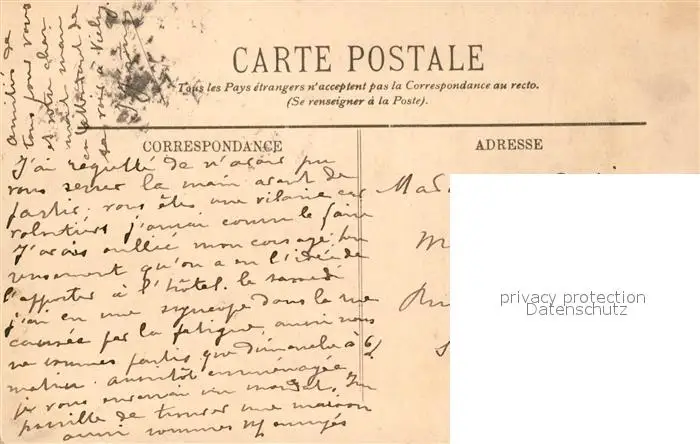 CARTE POSTALE
Tous les Pays étrangers n'acceptent pas la Correspondance au recto.
(Se renseigner à la Poste).
CORRESPONDANCE
ADRESSE
J'ai regretté de n'avoir pu
vous serrer la main avant de
partir. vous êtes une vilaine car
volontiers j'aurai comme le faire
J'avais oublié mon corsage, heu
reusement qu'on a eu l'idée de
l'apporter à l'hôtel. le samedi
j'ai eu une syncope dans la rue
causée par la fatigue, aussi nous
ne sommes partis que dimanche à 6h
matin. aussitôt emménagée
je vous enverrai un mandat. Im
possible de trouver une maison
aussi sommes
Mad
M
amitiés de
tous pour vous
et votre cher
mari
en attendant de
privacy protection
Datenschutz